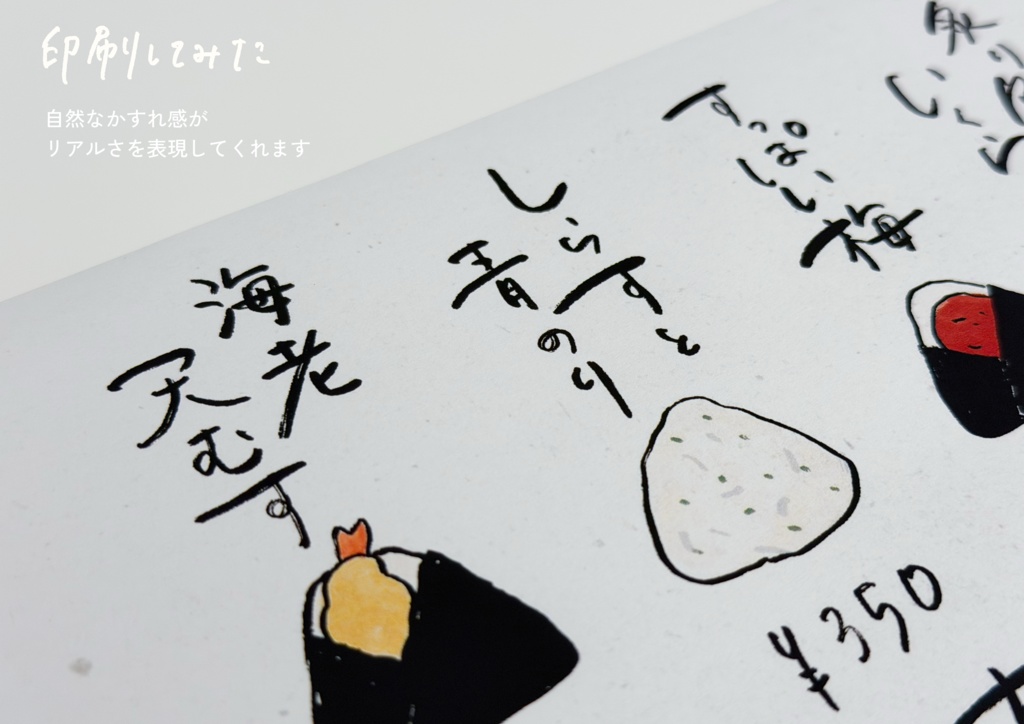 印刷してみた
自然なかすれ感が
リアルさを表現してくれます
すっぱい
梅
しらすと
青のり
海老
天むす
¥350